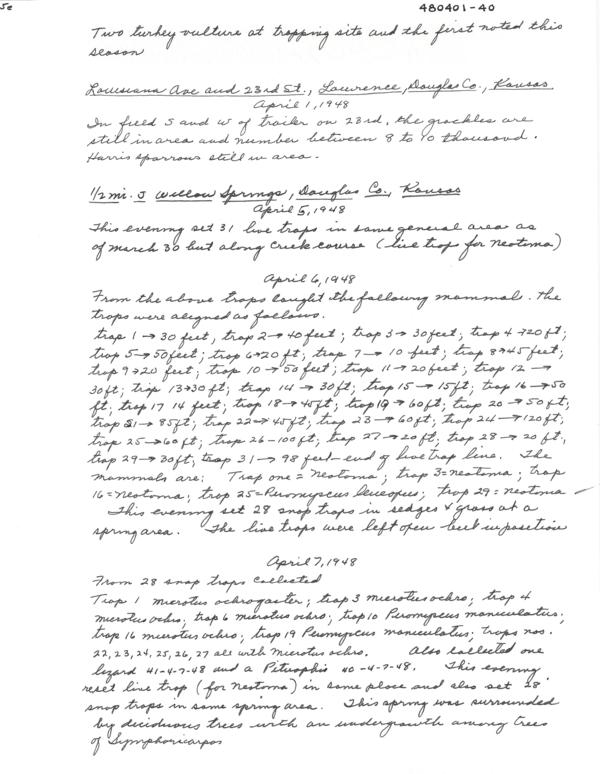 5e
480401-40
Two turkey vulture at trapping site and the first noted this
season
Louisiana Ave and 23rd St., Lawrence, Douglas Co., Kansas
April 1, 1948
In field S and W of trailer on 23rd, the grackles are
still in area and number between 8 to 10 thousand.
Harris sparrows still in area.
1/2 mi. S Willow Springs, Douglas Co., Kansas
April 5, 1948
This evening set 31 live traps in same general area as
of March 30 but along creek course (live trap for Neotoma)
April 6, 1948
From the above traps caught the following mammals. The
traps were aligned as follows.
trap 1 → 30 feet, trap 2 → 40 feet; trap 3 → 30 feet; trap 4 → 20 ft;
trap 5 → 50 feet; trap 6 → 20 ft; trap 7 → 10 feet; trap 8 → 45 feet;
trap 9 → 20 feet; trap 10 → 50 feet; trap 11 → 20 feet; trap 12 →
30 ft; trap 13 → 30 ft; trap 14 → 30 ft; trap 15 → 15 ft; trap 16 → 50
ft; trap 17 14 feet; trap 18 → 45 ft; trap 19 → 60 ft; trap 20 → 50 ft;
trap 21 → 85 ft; trap 22 → 45 ft; trap 23 → 60 ft; trap 24 → 120 ft;
trap 25 → 60 ft; trap 26 - 100 ft; trap 27 → 20 ft; trap 28 → 20 ft;
trap 29 → 30 ft; trap 31 → 98 feet - end of live trap line. The
mammals are: Trap one = Neotoma; trap 3 = neotoma; trap
16 = Neotoma; trap 25 = Peromyscus leucopus; trap 29 = neotoma
This evening set 28 snap traps in sedges & grass at a
spring area. The live traps were left open but in position
April 7, 1948
From 28 snap traps collected
Trap 1 microtus ochrogaster; trap 3 microtus ochro; trap 4
microtus ochro; trap 6 microtus ochro; trap 10 Peromyscus maniculatus;
trap 16 microtus ochro; trap 19 Peromyscus maniculatus; traps nos.
22, 23, 24, 25, 26, 27 all with microtus ochro. Also collected one
lizard 41-4-7-48 and a Pituophis 40-4-7-48. This evening
reset live trap (for Neotoma) in same place and also set 28
snap traps in same spring area. This spring was surrounded
by deciduous trees with an undergrowth among trees
of Symphoricarpos